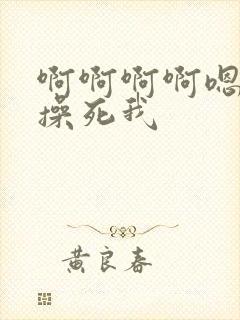 啊啊啊啊嗯
操死我
黄良春